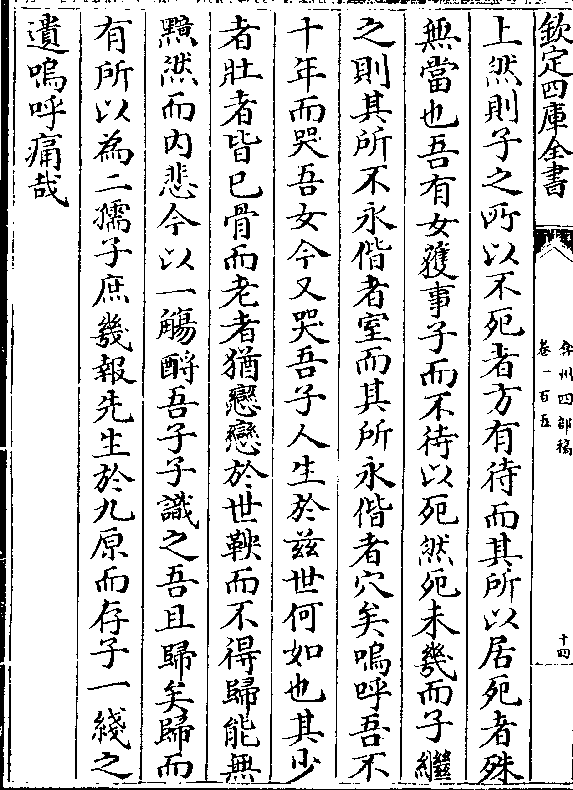 欽定四庫全書
弇州四部稿
卷一百五
十四
上然則子之所以不死者方有待而其所以居死者殊
無當也吾有女獲事子而不待以死然死未幾而子繼
之則其所不永偕者室而其所永偕者穴矣嗚呼吾不
十年而哭吾女今又哭吾子人生於兹世何如也其少
者壯者皆已骨而老者猶戀戀於世鞅而不得歸能無
黯然而内悲今以一觴酹吾子子識之吾且歸矣歸而
有所以為二孺子庶幾報先生於九原而存子一綫之
遺嗚呼痛哉